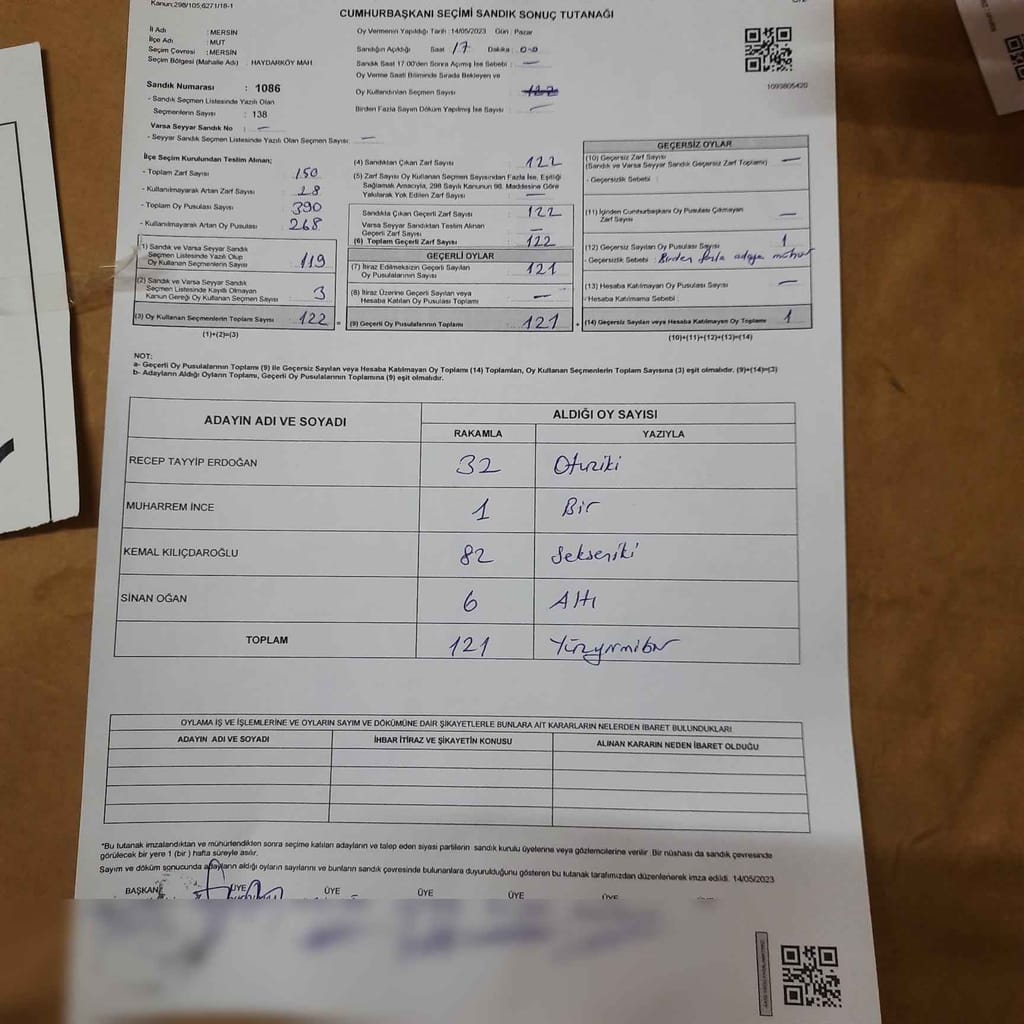 Kanun;298/105;6271/18-1
CUMHURBAŞKANI SEÇİMİ SANDIK SONUÇ TUTANAĞI
İl Adı : MERSİN
İlçe Adı : MUT
Seçim Çevresi : MERSİN
Seçim Bölgesi (Mahalle Adı) : HAYDARKÖY MAH
Sandık Numarası : 1086
- Sandık Seçmen Listesinde Yazılı Olan
Seçmenlerin Sayısı : 138
Varsa Seyyar Sandık No : —
- Seyyar Sandık Seçmen Listesinde Yazılı Olan Seçmen Sayısı: —
Oy Vermenin Yapıldığı Tarih : 14/05/2023 Gün : Pazar
Sandığın Açıldığı Saat : 17 Dakika : 00
Sandık Saat 17:00'den Sonra Açılmış İse Sebebi : —
Oy Verme Saati Bitiminde Sırada Bekleyen ve
Oy Kullandırılan Seçmen Sayısı : 122
Birden Fazla Sayım Döküm Yapılmış İse Sayısı : —
1093805420
İlçe Seçim Kurulundan Teslim Alınan;
- Toplam Zarf Sayısı : 150
- Kullanılmayarak Artan Zarf Sayısı : 28
- Toplam Oy Pusulası Sayısı : 390
- Kullanılmayarak Artan Oy Pusulası : 268
(1) Sandık ve Varsa Seyyar Sandık
Seçmen Listesinde Yazılı Olup
Oy Kullanan Seçmenlerin Sayısı : 119
(2) Sandık ve Varsa Seyyar Sandık
Seçmen Listesinde Kayıtlı Olmayan
Kanun Gereği Oy Kullanan Seçmen Sayısı : 3
(3) Oy Kullanan Seçmenlerin Toplam Sayısı : 122 =
(1)+(2)=(3)
(4) Sandıktan Çıkan Zarf Sayısı : 122
(5) Zarf Sayısı Oy Kullanan Seçmen Sayısından Fazla İse, Eşitliği
Sağlamak Amacıyla, 298 Sayılı Kanunun 98. Maddesine Göre
Yakılarak Yok Edilen Zarf Sayısı : —
Sandıkta Çıkan Geçerli Zarf Sayısı : 122
Varsa Seyyar Sandıktan Teslim Alınan
Geçerli Zarf Sayısı : —
(6) Toplam Geçerli Zarf Sayısı : 122
GEÇERLİ OYLAR
(7) İtiraz Edilmeksizin Geçerli Sayılan
Oy Pusulalarının Sayısı : 121
(8) İtiraz Üzerine Geçerli Sayılan veya
Hesaba Katılan Oy Pusulası Toplamı : —
(9) Geçerli Oy Pusulalarının Toplamı : 121 +
GEÇERSİZ OYLAR
(10) Geçersiz Zarf Sayısı
(Sandık ve Varsa Seyyar Sandık Geçersiz Zarf Toplamı) : —
- Geçersizlik Sebebi :
(11) İçinden Cumhurbaşkanı Oy Pusulası Çıkmayan
Zarf Sayısı : —
(12) Geçersiz Sayılan Oy Pusulası Sayısı : 1
- Geçersizlik Sebebi : Birden fazla adaya mühür
(13) Hesaba Katılmayan Oy Pusulası Sayısı : —
- Hesaba Katılmama Sebebi :
(14) Geçersiz Sayılan veya Hesaba Katılmayan Oy Toplamı : 1
(10)+(11)+(12)+(13)=(14)
NOT:
a- Geçerli Oy Pusulalarının Toplamı (9) ile Geçersiz Sayılan veya Hesaba Katılmayan Oy Toplamı (14) Toplamları, Oy Kullanan Seçmenlerin Toplam Sayısına (3) eşit olmalıdır. (9)+(14)=(3)
b- Adayların Aldığı Oyların Toplamı, Geçerli Oy Pusulalarının Toplamına (9) eşit olmalıdır.
ADAYIN ADI VE SOYADI ALDIĞI OY SAYISI
RAKAMLA YAZIYLA
RECEP TAYYİP ERDOĞAN 32 Otuziki
MUHARREM İNCE 1 Bir
KEMAL KILIÇDAROĞLU 82 Sekseniki
SİNAN OĞAN 6 Altı
TOPLAM 121 Yüzyirmibir
OYLAMA İŞ VE İŞLEMLERİNE VE OYLARIN SAYIM VE DÖKÜMÜNE DAİR ŞİKAYETLERLE BUNLARA AİT KARARLARIN NELERDEN İBARET BULUNDUKLARI
ADAYIN ADI VE SOYADI İHBAR İTİRAZ VE ŞİKAYETİN KONUSU ALINAN KARARIN NEDEN İBARET OLDUĞU
*Bu tutanak imzalandıktan ve mühürlendikten sonra seçime katılan adayların ve talep eden siyasi partilerin sandık kurulu üyelerine veya gözlemcilerine verilir. Bir nüshası da sandık çevresinde
görülecek bir yere 1 (bir) hafta süreyle asılır.
Sayım ve döküm sonucunda adayların aldığı oyların sayılarını ve bunların sandık çevresinde bulunanlara duyurulduğunu gösteren bu tutanak tarafımızdan düzenlenerek imza edildi. 14/05/2023
BAŞKAN ÜYE ÜYE ÜYE ÜYE ÜYE